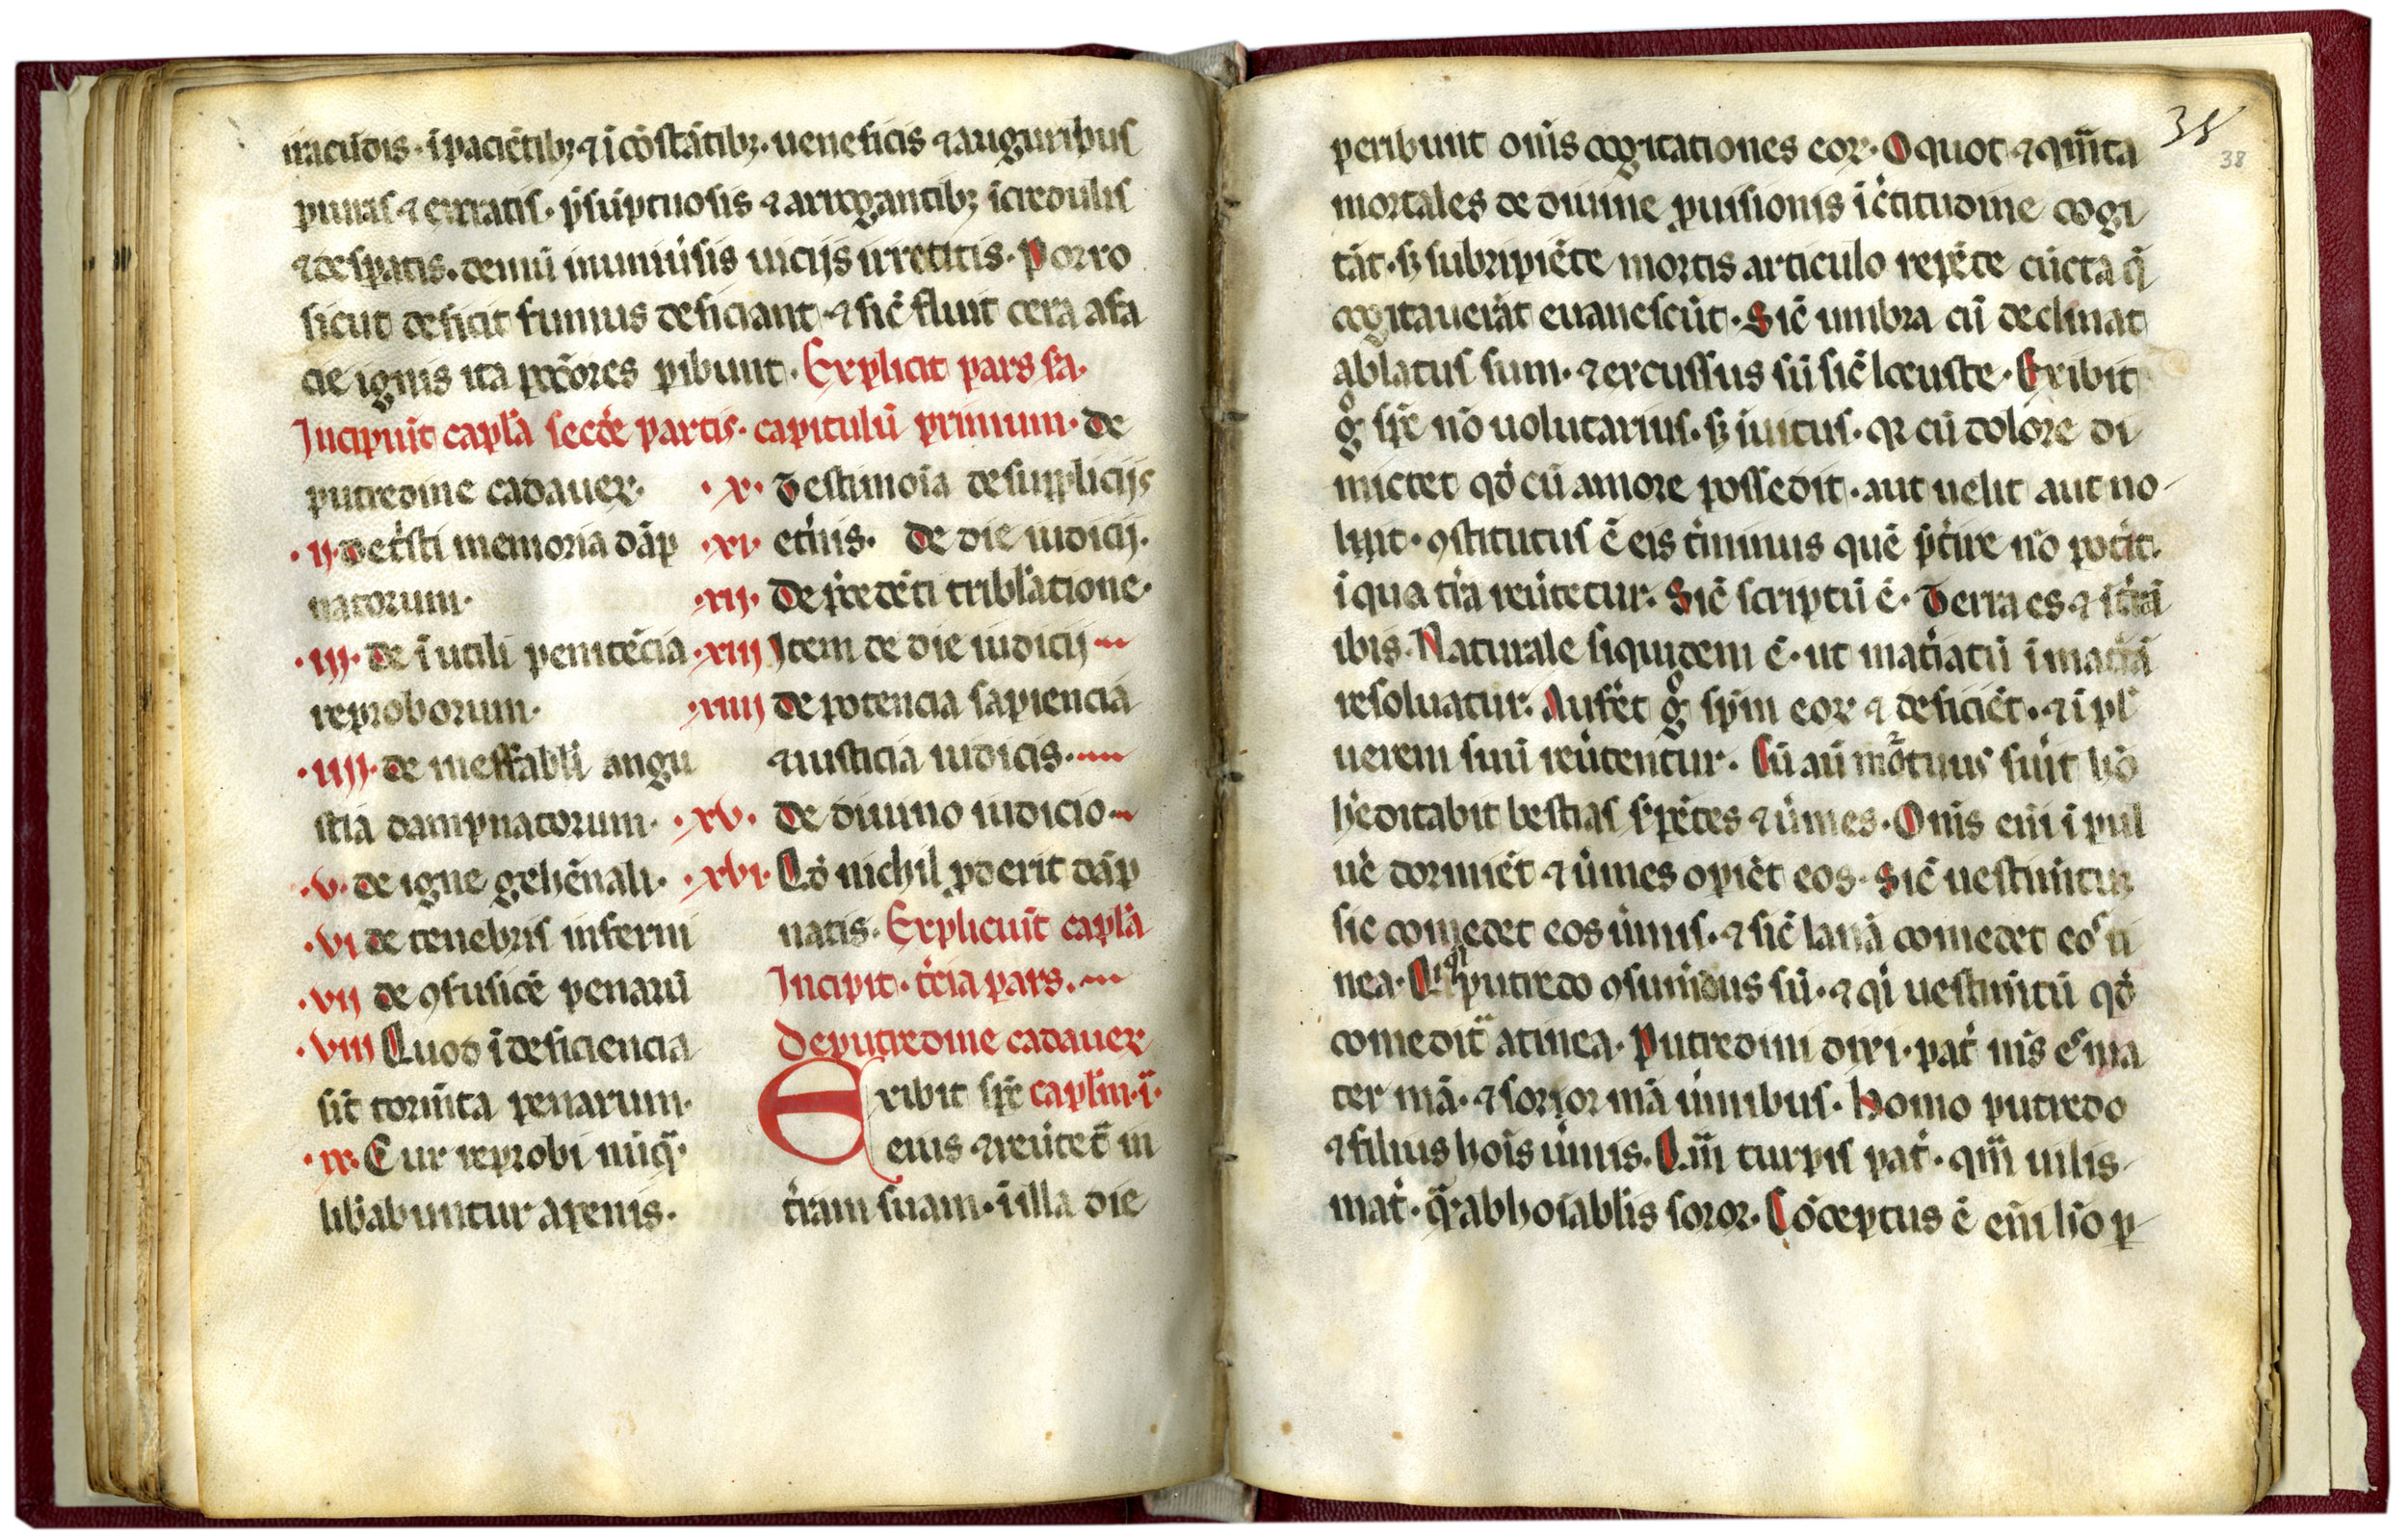 iracūdis · īpaciētibꝫ ⁊ īcōstātibꝫ · ueneficis ⁊ auguribus
piuris ⁊ erratis · p̄sūptuosis ⁊ arrogantibꝫ īcredulis
⁊ desperatis · demū inumūsis uicijs irretitis · Porro
sicut deficit fumus deficiant · ⁊ sic̄ fluit cera afa
cie ignis ita pc̄cores pibunt · Explicit pars sa ·
Incipiūt capl̄a sec̄de partis · capitulū primum · de
putredine cadaueꝝ
· ij · de tr̄sti memoria dāp
natorum ·
· iij · de īutili penitēcia
reproborum ·
· iiij · de ineffabili angu
stia dampnatorum ·
· v · de igne gehēnali ·
· vi de tenebris inferni
· vii de ꝯfusiōe penarū
· viii Quod īdeficiencia
sit̄ torm̄ta penarum ·
· ix · Cur reprobi nūq̄ ·
lib̄abuntur apenis ·
· x · Testimōia desupplicijs
· xi · et̄nis · de die iudicij ·
· xij · De p̄cedēti tribl̄atione ·
· xiij Item de die iudicij
· xiiij de potencia sapiencia
⁊ iusticia iudicis ·
· xv · De diuino iudicio
· xvi · Qd̄ nichil ꝓderit dāp
natis · Explicūit capl̄a
Incipit · t̄cia pars ·
Deputredine cadaueꝝ
Exibit sp̄c capl̄m · i ·
eius ⁊ reūtet̄ in
tr̄ram suam · ī illa die
38
38
peribunt om̄s cogitationes eoꝝ · O quot ⁊ qm̄ta
mortales de diuine ꝓuisionis īc̄titudine cogi
tāt · sꝫ subripiēte mortis articulo repēte cūcta q̄
cogitauerāt euanescūt · Sic̄ umbra cū declinat
ablatus sum · ⁊ excussus sū sic̄ locuste · Exibit
gͦ sp̄c nō uolūtarius · sꝫ īuitus · qꝛ cū dolore di
mictet qd̄ cū amore possedit · aut uelit aut no
lint · ꝯstitutus ē eis t̄minus quē p̄t̄ire nō pot̄it
ī qua tr̄a reūtetur · Sic̄ scriptū ē · Terra es ⁊ ī tr̄ā
ibis · Naturale siquidem ē · ut mat̄iatū ī mat̄iā
resoluatur · Aufēt gͦ sp̄m eoꝝ ⁊ deficiēt · ⁊ ī pl̄
uerem suū reūtentur · Cū aū mōtuus fūit hō
h̄editabit bestias s̄pētes ⁊ ūmes · Om̄s em̄ ī pul
ue̅ dormiēt ⁊ ūmes opiēt eos · Sic̄ uestim̄tū
sic comedet eos ūmis · ⁊ sic̄ lanā comedet eos ti
nea · Qi putredo ꝯsumēdus sū · ⁊ qi uestim̄tū qd̄
comedit̄ atinea · Putredini dixi · pat̄ m̄s es ma
ter mā · ⁊ soror mā ūmibus · homo putredo
⁊ filius hoīs ūmis · Qm̄ turpis pat̄ · qm̄ uilis
mat̄ · q̄ abhoīablis soror · Cōceptus ē em̄ hō ꝑ